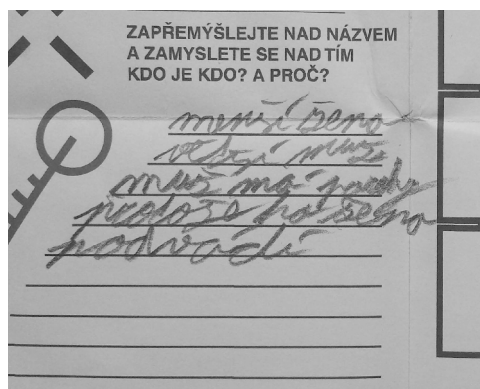 ZAPŘEMÝŠLEJTE NAD NÁZVEM
A ZAMYSLETE SE NAD TÍM
KDO JE KDO? A PROČ?
menší žena
větší muž,
muž má rohy
protože ho žena
podvádí